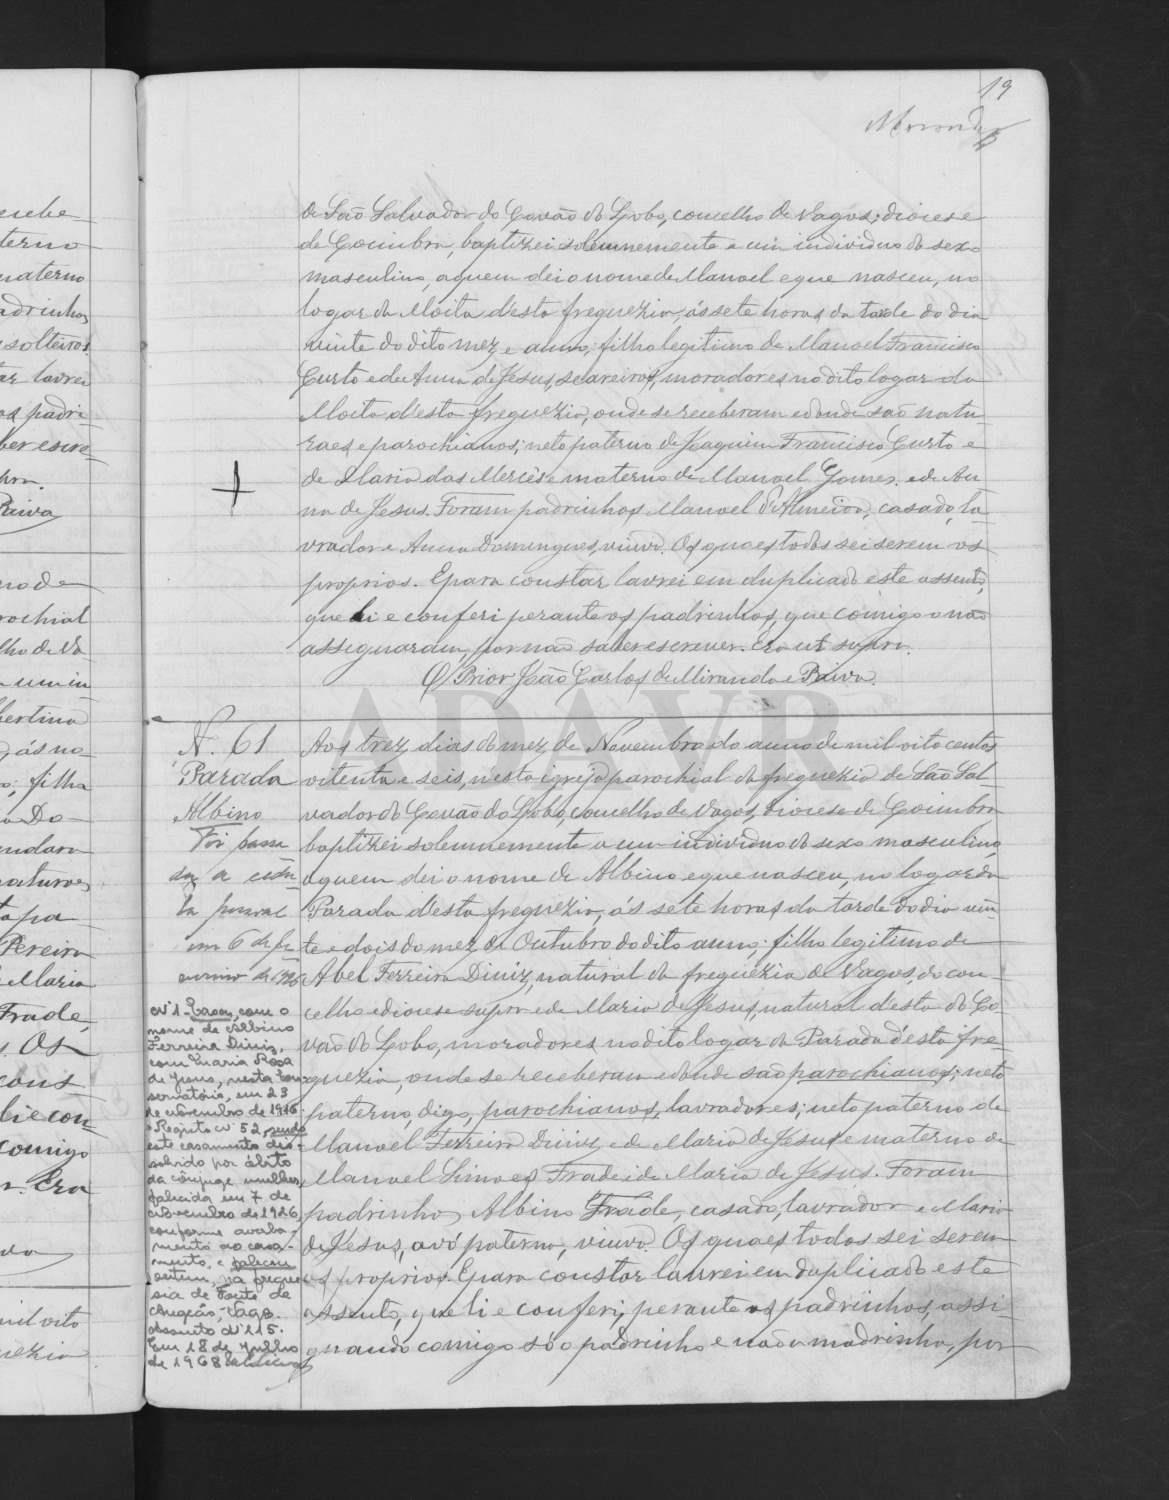 19
Miranda
de São Salvador do Covão do Lobo, concelho de Vagos, diocese
de Coimbra, baptizei solemnemente a um individuo do sexo
masculino, a quem dei o nome de Manoel e que nasceu, no
logar da Moita d'esta freguezia, ás sete horas da tarde do dia
vinte do dito mez e anno, filho legitimo de Manoel Francisco
Curto e de Anna de Jesus, seareiros, moradores no dito logar da
Moita d'esta freguezia, onde se receberam e donde são natu-
raes e parochianos; neto paterno de Joaquim Francisco Curto e
de Maria das Mercês e materno de Manoel Gomes e de An-
na de Jesus. Foram padrinhos Manoel d'Almeida, casado, la-
vrador e Anna Domingues, viuva. Os quaes todos sei serem os
proprios. E para constar lavrei em duplicado este assento,
que li e conferi perante os padrinhos, que comigo o não
assignaram, por não saber escrever. Era ut supra.
O Prior João Carlos de Miranda e Paiva.
N. 61
Parada
Albino
Foi passa
da a cedu
la pessoal
em 6 de fe
vereiro de
Nº 1 - Casou, com o
nome de Albino
Ferreira Diniz,
com Maria Rosa
de Jesus, nesta Con-
servatória, em 23
de Novembro de 1916.
Registo nº 52, sendo
este casamento dis-
solvido por óbito
da cônjuge mulher,
falecida em 7 de
conforme averba-
mento ao casa-
mento, e faleceu
na fregue
sia de Fonte de
Angeão, Vagos.
Assento nº 115.
Em 18 de Julho
de 1968
Aos trez dias do mez de Novembro do anno de mil oito centos
oitenta e seis, n'esta igreja parochial da freguezia de São Sal-
vador do Covão do Lobo, concelho de Vagos, diocese de Coimbra
baptizei solemnemente a um individuo do sexo masculino,
a quem dei o nome de Albino e que nasceu, no logar da
Parada d'esta freguezia, ás sete horas da tarde do dia vin-
te e dois do mez de Outubro do dito anno; filho legitimo de
Abel Ferreira Diniz, natural da freguezia de Vagos, do con-
celho e diocese supra e de Maria de Jesus, natural d'esta do Co-
vão do Lobo, moradores no dito logar da Parada d'esta fre-
guezia, onde se receberam e donde são parochianos; neto
paterno, digo, parochianos, lavradores; neto paterno de
Manoel Ferreira Diniz e de Maria de Jesus e materno de
Manoel Simoes Frade e de Maria de Jesus. Foram
padrinhos Albino Frade, casado, lavrador e Maria
de Jesus, avó paterna, viuva. Os quaes todos sei serem
os proprios. E para constar lavrei em duplicado este
assento, que li e conferi, perante os padrinhos, assi-
gnando comigo só o padrinho e não a madrinha, por
ADAVR